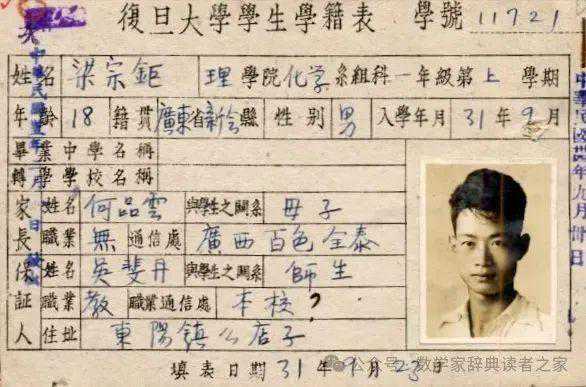 復旦大學學生學籍表 學號 11721
姓名 梁宗鉅 理學院化学系組科一年級第上學期
年齡 18 籍貫 廣東省新会縣 性別 男 入學年月 31年9月
畢業中學名稱
轉學學校名稱
家長 姓名 何品雲 與學生之關系 母子
職業 無 通信處 廣西百色全泰
保証人 姓名 吳斐丹 與學生之關系 師生
職業 教 職業通信處 本校?
住址 東陽鎮公店子
填表日期 31年9月23日
公众号·数学家辞典读者之家